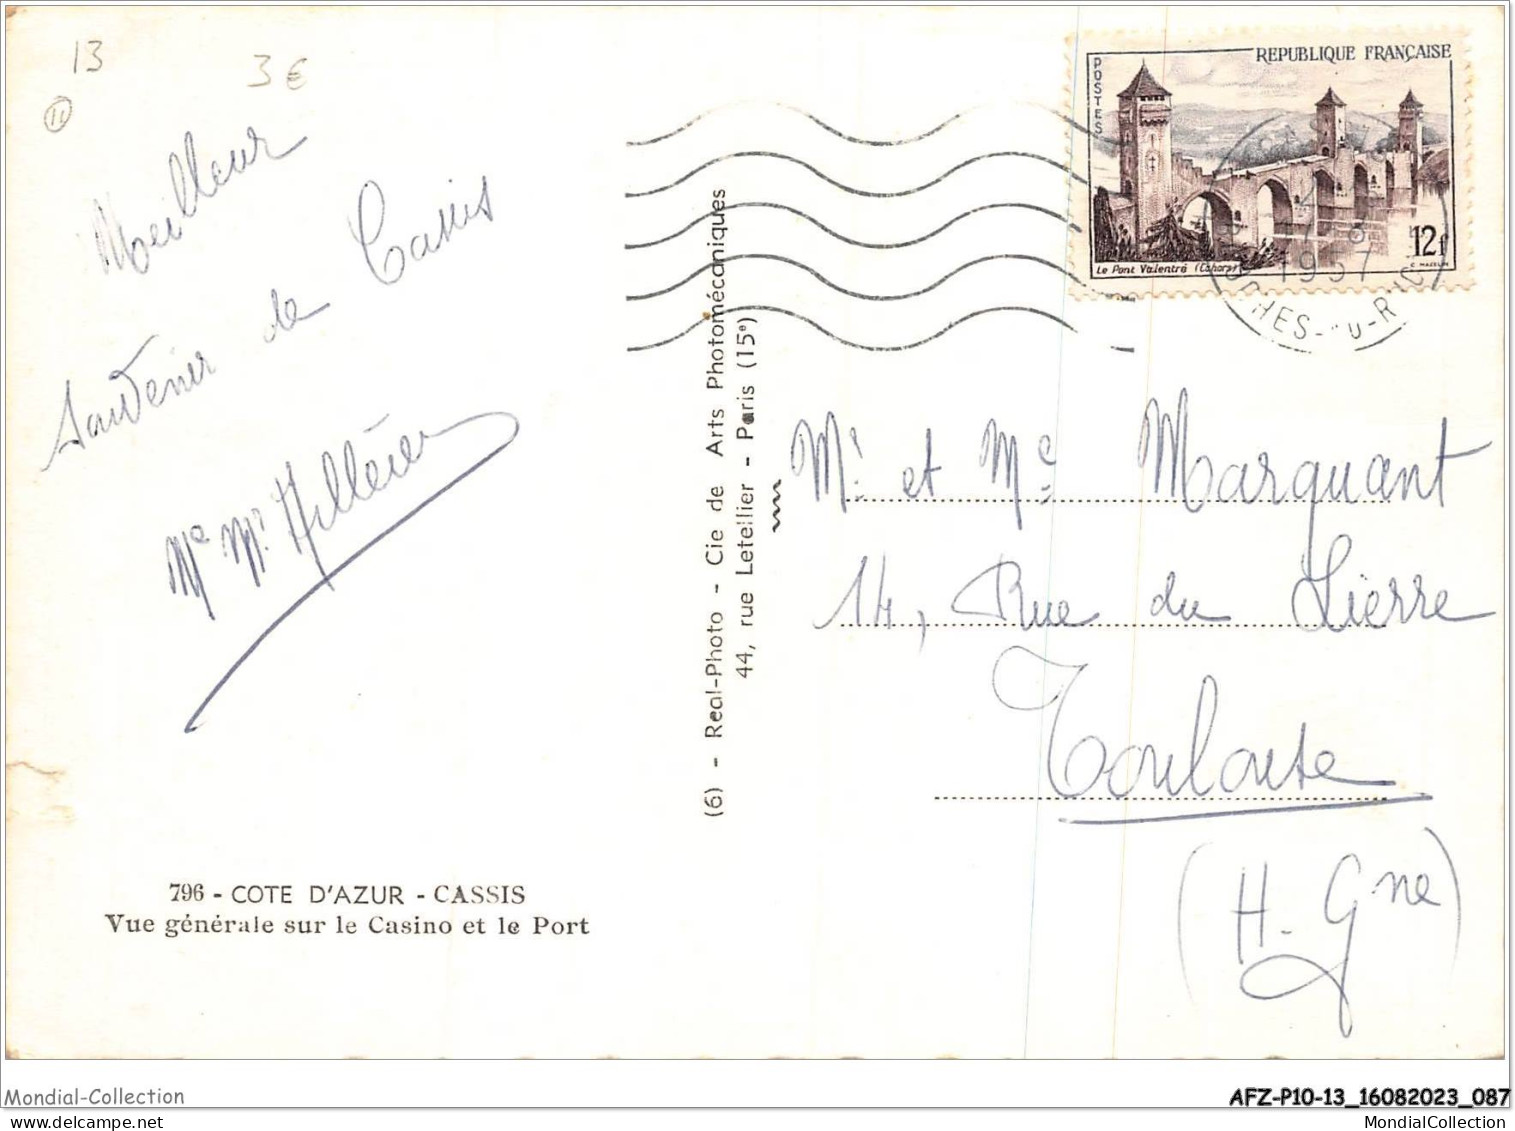 13
3€
11
Meilleur
Souvenir de Cassis
Me Mr
REPUBLIQUE FRANÇAISE
POSTES
12f
Le Pont Valentré (Cahors)
C. MAZELIN
CASSIS
1957
BCHES-DU-RHO
(6) - Real-Photo - Cie de Arts Photomécaniques
44, rue Letellier - Paris (15e)
Mr et Me Marquant
14, Rue du Lierre
Toulouse
(H. Gne)
796 - COTE D'AZUR - CASSIS
Vue générale sur le Casino et le Port
Mondial-Collection
AFZ-P10-13_16082023_087
mondialcollection.com
MondialCollection